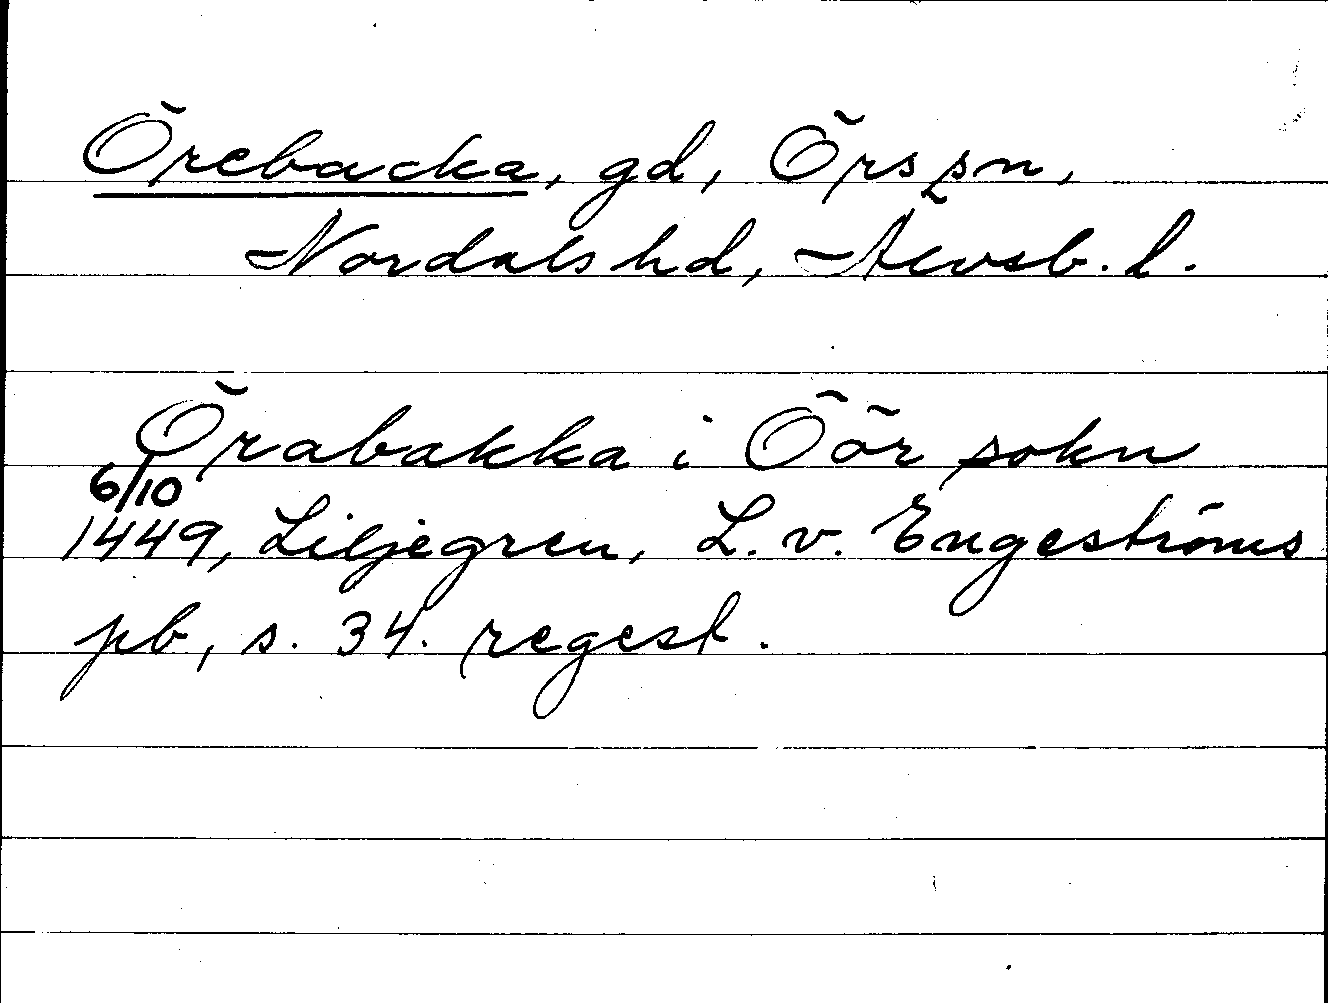 Örebacka, gd, Örs sn,
Nordals hd, Älvsb. l.
Örabakka i Öör sokn
6/10
1449, Liljegren, L. v. Engeströms
pb, s. 34. regest.